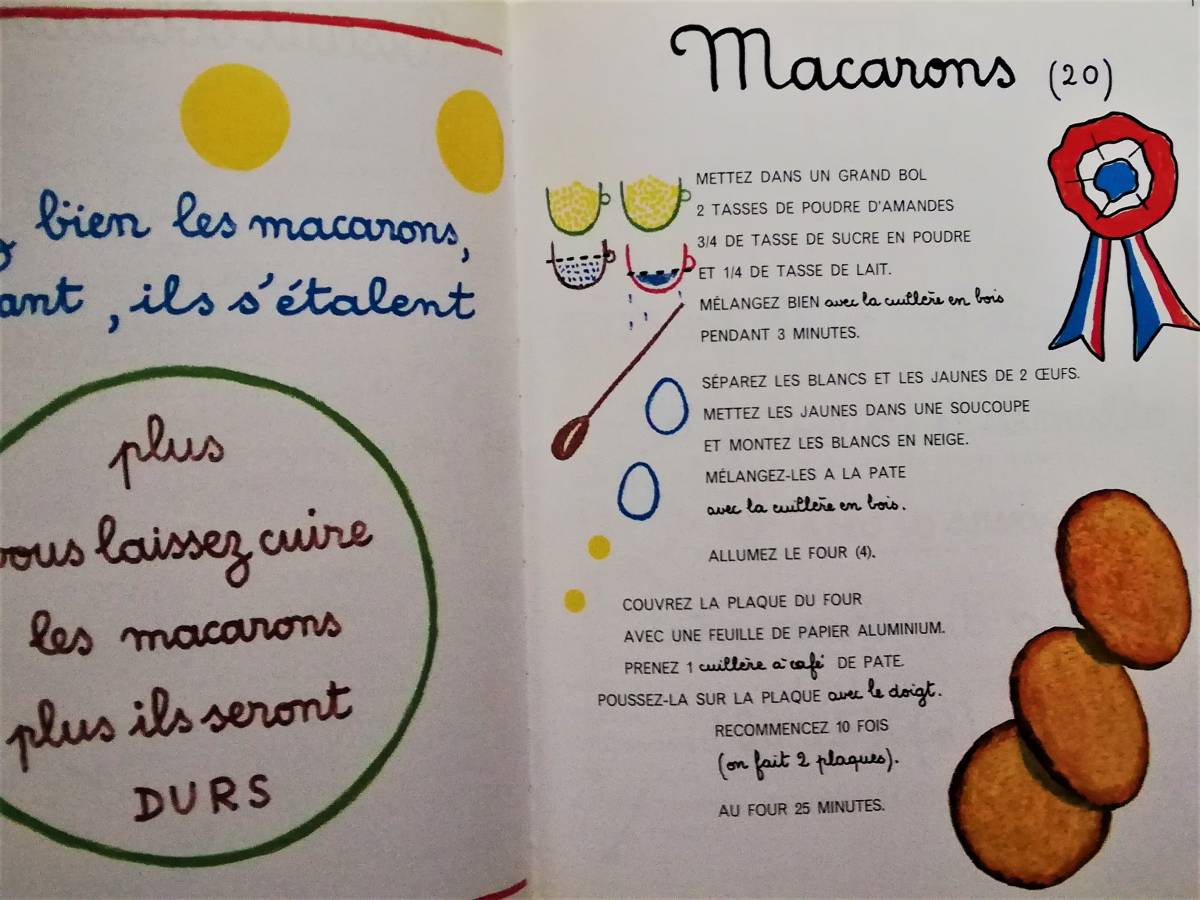 bien les macarons,
ant, ils s'étalent
plus
vous laissez cuire
les macarons
plus ils seront
DURS
Macarons (20)
METTEZ DANS UN GRAND BOL
2 TASSES DE POUDRE D'AMANDES
3/4 DE TASSE DE SUCRE EN POUDRE
ET 1/4 DE TASSE DE LAIT.
MÉLANGEZ BIEN avec la cuillère en bois
PENDANT 3 MINUTES.
SÉPAREZ LES BLANCS ET LES JAUNES DE 2 ŒUFS.
METTEZ LES JAUNES DANS UNE SOUCOUPE
ET MONTEZ LES BLANCS EN NEIGE.
MÉLANGEZ-LES A LA PATE
avec la cuillère en bois.
ALLUMEZ LE FOUR (4).
COUVREZ LA PLAQUE DU FOUR
AVEC UNE FEUILLE DE PAPIER ALUMINIUM.
PRENEZ 1 cuillère à café DE PATE.
POUSSEZ-LA SUR LA PLAQUE avec le doigt.
RECOMMENCEZ 10 FOIS
(on fait 2 plaques).
AU FOUR 25 MINUTES.